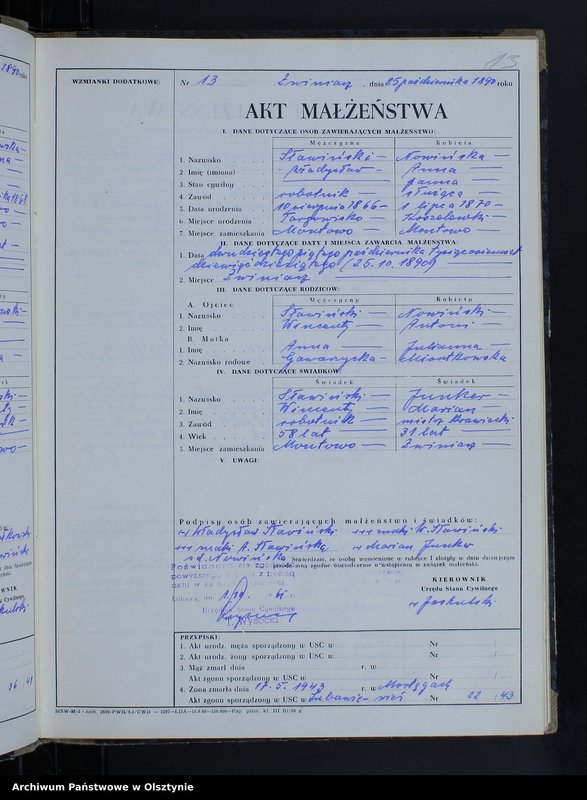 13
WZMIANKI DODATKOWE:
Nr 13 Zwiniarz, dnia 25 października 1890 roku
AKT MAŁŻEŃSTWA
I. DANE DOTYCZĄCE OSÓB ZAWIERAJĄCYCH MAŁŻEŃSTWO:
Mężczyzna Kobieta
1. Nazwisko Sławiński Nowińska
2. Imię (imiona) Władysław Anna
3. Stan cywilny panna
4. Zawód robotnik służąca
5. Data urodzenia 10 sierpnia 1866 1 lipca 1870
6. Miejsce urodzenia Targowisko Koszelewki
7. Miejsce zamieszkania Montowo Montowo
II. DANE DOTYCZĄCE DATY I MIEJSCA ZAWARCIA MAŁŻEŃSTWA:
1. Data dwudziestego piątego października tysiąc osiemset
dziewięćdziesiątego (25.10.1890)
2. Miejsce Zwiniarz
III. DANE DOTYCZĄCE RODZICÓW:
Mężczyzny Kobiety
A. Ojciec
1. Nazwisko Sławiński Nowiński
2. Imię Wincenty Antoni
B. Matka
1. Imię Anna Julianna
2. Nazwisko rodowe
IV. DANE DOTYCZĄCE ŚWIADKÓW:
Świadek Świadek
1. Nazwisko Sławiński Junker
2. Imię Wincenty Marian
3. Zawód robotnik mistrz krawiecki
4. Wiek 58 lat 31 lat
5. Miejsce zamieszkania Montowo Zwiniarz
V. UWAGI:
Podpisy osób zawierających małżeństwo i świadków:
Władysław Sławiński znaki W. Sławiński
znaki A. Sławińska Marian Junker
z d. Nowińska Stwierdzam, że osoby wymienione w rubryce I złożyły w dniu dzisiejszym
przede mną zgodne oświadczenie o wstąpieniu w związek małżeński.
Poświadcza się zgodność
powyższego z treścią
aktu w
KIEROWNIK
Urzędu Stanu Cywilnego
Urzędu Stanu Cywilnego
Wysocki
PRZYPISKI:
1. Akt urodz. męża sporządzony w USC w Nr /
2. Akt urodz. żony sporządzony w USC w Nr /
3. Mąż zmarł dnia r. w
Akt zgonu sporządzony w USC w Nr /
4. Żona zmarła dnia 17.5.1943 r. w Mortęgach
Akt zgonu sporządzony w USC w Nr 22/43
Archiwum Państwowe w Olsztynie